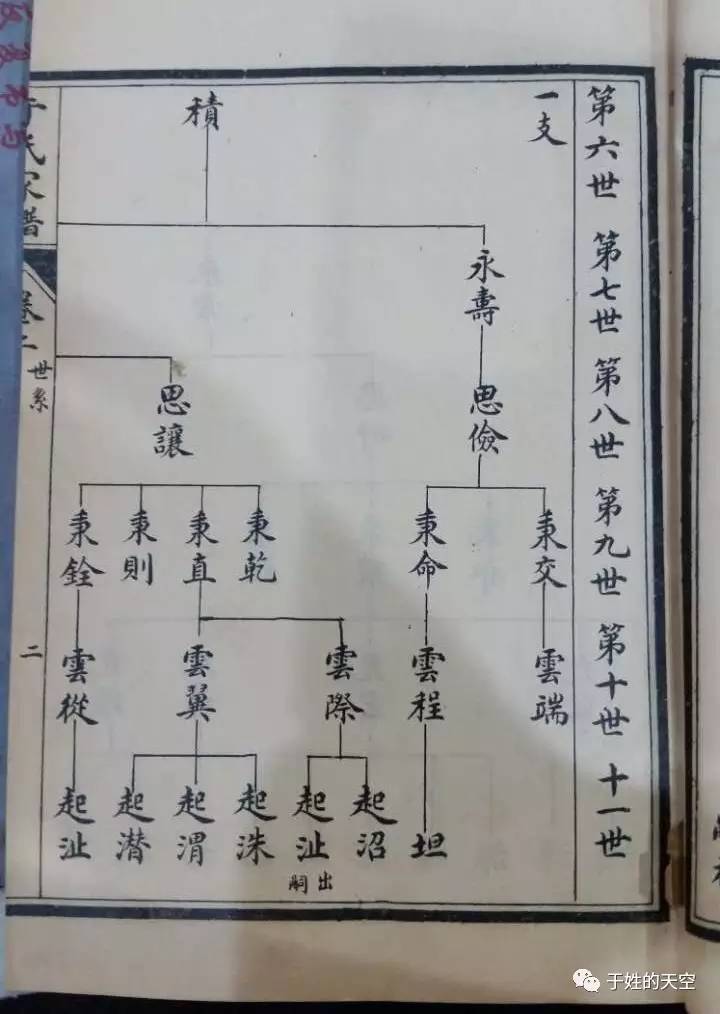 第六世 第七世 第八世 第九世 第十世 十一世
一支
積
永壽
思儉
思讓
秉交
秉命
秉乾
秉直
秉則
秉銓
雲端
雲程
雲際
雲翼
雲從
坦
起沼
起沚
出嗣
起洙
起渭
起潜
起沚
于氏家譜
卷二
世系
二
于姓的天空